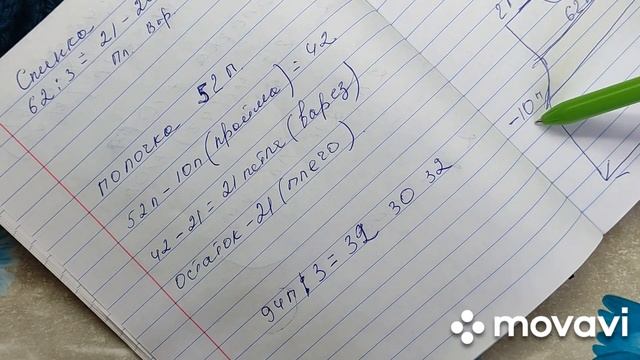 Спинка
62:3 = 21 - 20
Пл. Вор
полочка 52 п
52п - 10п (пройма) = 42
42 - 21 = 21 петля (варез)
остаток - 21 (плечо)
94п : 3 = 32 30 32
62
-10п
movavi